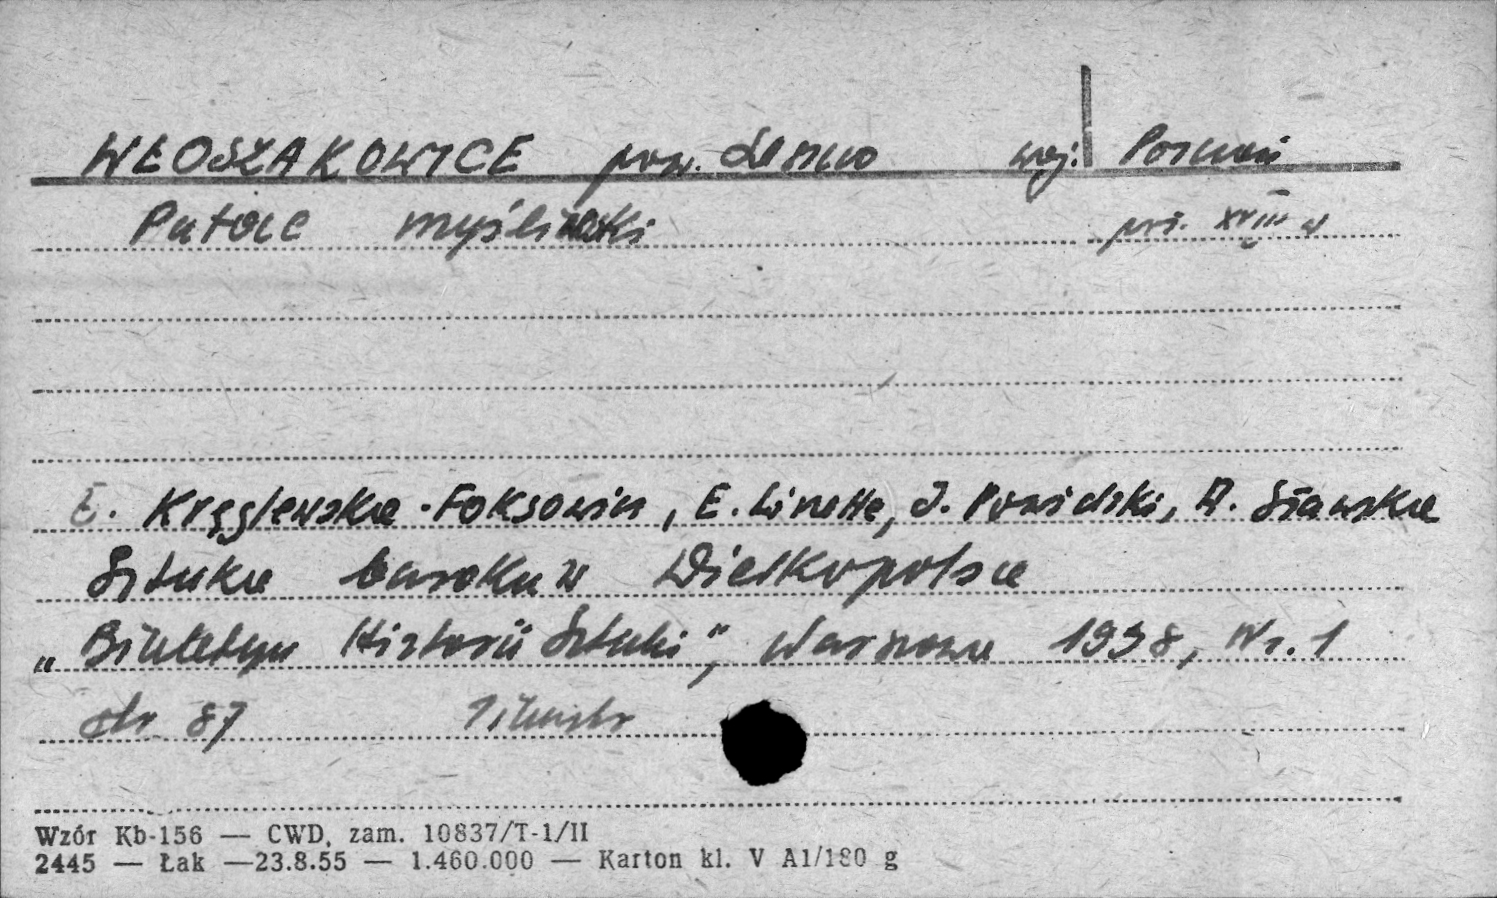 WŁOSZAKOWICE pow. Leszno woj. Poznań
Pałac myśliwski poł. XVIII w
E. Kręglewska-Foksowicz, E. Linette, J. Powidzki, A. Sławska
Sztuka baroku w Wielkopolsce
„Biuletyn Historii Sztuki", Warszawa 1958, Nr. 1
str 87 1 ilustr
Wzór Kb-156 — CWD, zam. 10837/T-1/II
2445 — Łak —23.8.55 — 1.460.000 — Karton kl. V A1/180 g